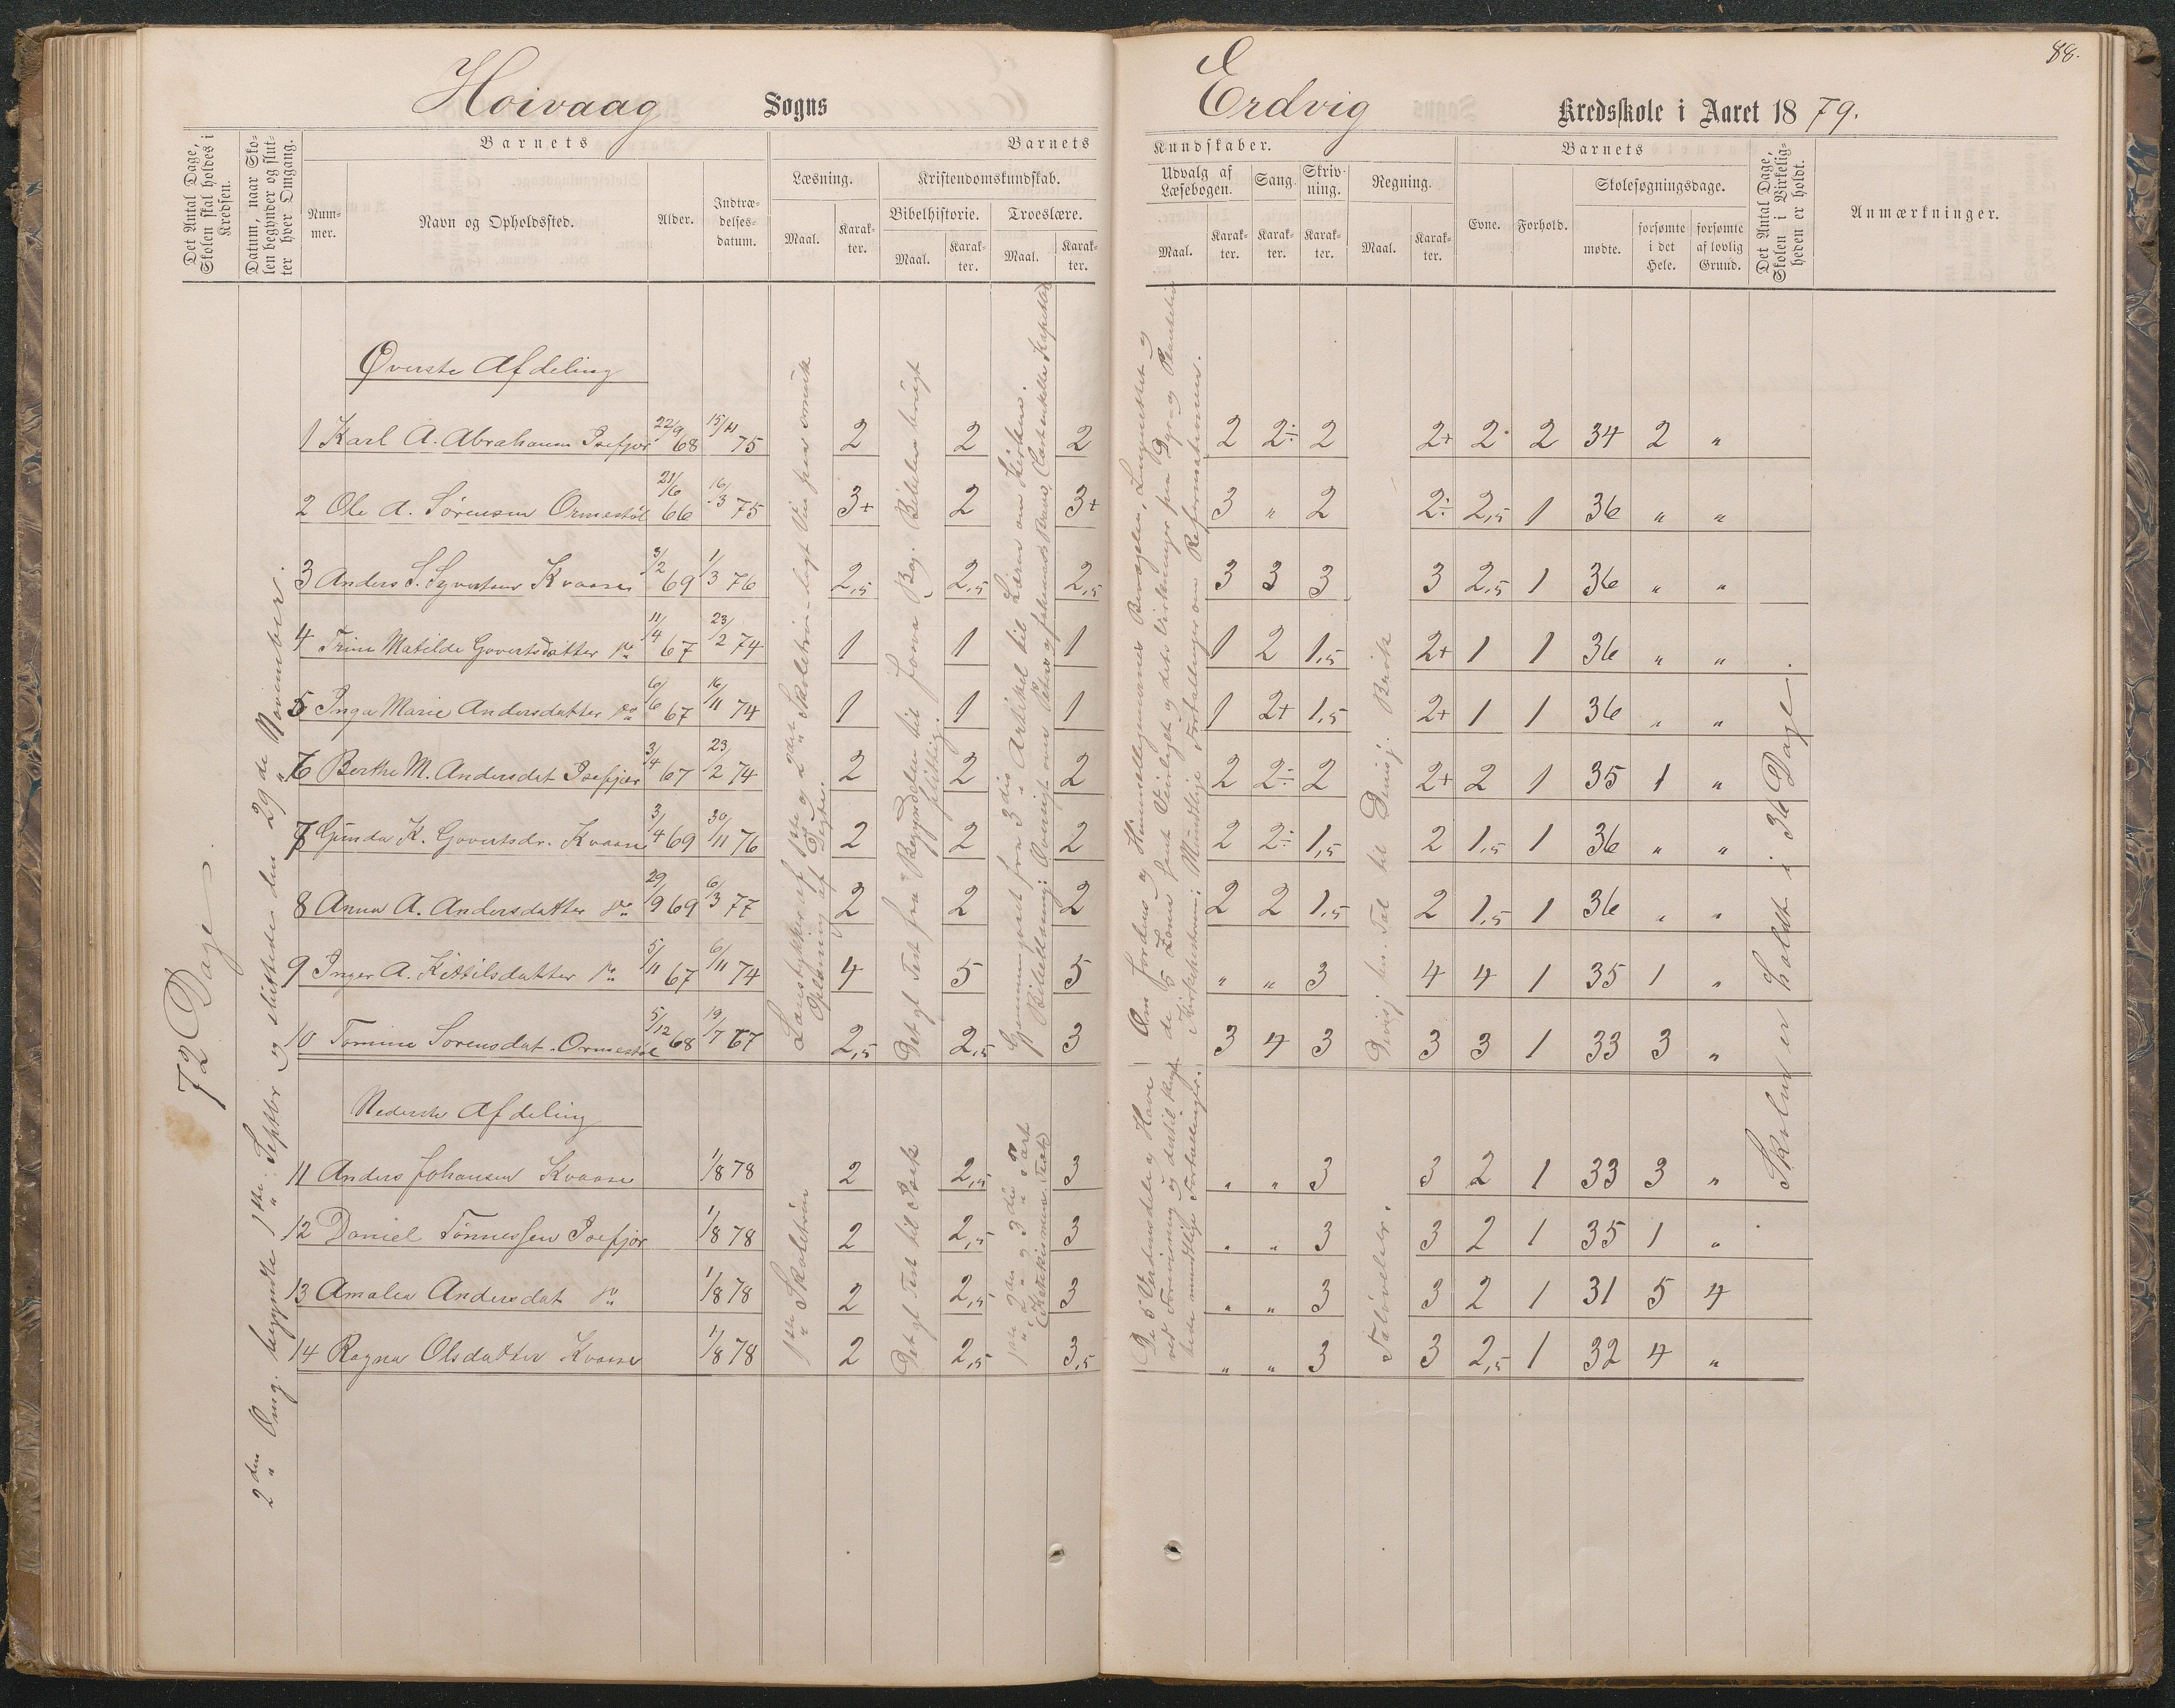 88.
Hoivaag Sogns Erdvig Kredsskole i Aaret 1879.
Det Antal Dage, Skolen skal holdes i Kredsen.
Datum, naar Skolen begynder og slutter hver Omgang.
Barnets
Nummer.
Navn og Opholdssted.
Alder.
Indtrædelsesdatum.
Barnets Kundskaber.
Læsning.
Maal.
Karakter.
Kristendomskundskab.
Bibelhistorie.
Maal.
Karakter.
Troeslære.
Maal.
Karakter.
Udvalg af Læsebogen.
Maal.
Karakter.
Sang.
Karakter.
Skrivning.
Karakter.
Regning.
Maal.
Karakter.
Barnets
Evne.
Forhold.
Skolesøgningsdage.
mødte.
forsømte i det Hele.
forsømte af lovlig Grund.
Det Antal Dage, Skolen i Virkeligheden er holdt.
Anmærkninger.
72 Dage.
2den Omg. begyndte 1ste Septbr og sluttedes den 29de November.
Øverste Afdeling
1 Karl A. Abrahamsen 22/9 68 15/11 75 2 2 2 2 2÷ 2 2+ 2 2 34 2 "
2 Ole A. Sørensen Ormestøl 21/6 66 16/3 75 3+ 2 3+ 3 " 2 2÷ 2,5 1 36 " "
3 Anders S. Syvertsen Kvaase 3/2 69 1/3 76 2,5 2,5 2,5 3 3 3 3 2,5 1 36 " "
4 Trine Matilde Govertsdatter do 11/4 67 23/2 74 1 1 1 1 2 1,5 2+ 1 1 36 " "
5 Inga Marie Andersdatter do 6/6 67 16/11 74 1 1 1 1 2+ 1,5 2+ 1 1 36 " "
6 Berthe M. Andersdat 3/4 67 23/2 74 2 2 2 2 2÷ 2 2+ 2 1 35 1 "
7 Gunda K. Govertsdr. Kvaase 3/4 69 30/11 76 2 2 2 2 2÷ 1,5 2 1,5 1 36 " "
8 Anna A. Andersdatter do 29/9 69 6/3 77 2 2 2 2 2 1,5 2 1,5 1 36 " "
9 Inger A. Kittilsdatter do 5/11 67 6/11 74 4 5 5 " " 3 4 4 1 35 1 "
10 Tomine Sorensdat. Ormestøl 5/12 68 19/7 67 2,5 2,5 3 3 4 3 3 3 1 33 3 "
Læsestykker af 1ste og 2det Skoletrin
Oplæsning af Digte.
Det gl. Test. fra Begyndelsen til Jonas Bog. Bibelen brugt flittig.
Gjennemgaaet fra 3die Artikel til Læren om Kirken.
Mundtlige Fortællinger om Reformationen.
Skolen er holdt i 36 Dage.
Nederste Afdeling
11 Anders Johansen Kvaase 1/8 78 2 2,5 3 " " 3 3 2 1 33 3 "
12 Daniel Tønnessen 1/8 78 2 2,5 3 " " 3 3 2 1 35 1 "
13 Amalea Andersdat do 1/8 78 2 2,5 3 " " 3 3 2 1 31 5 4
14 Ragna Olsdatter Kvaase 1/8 78 2 2,5 3,5 " " 3 3 2,5 1 32 4 "
1ste Skoletrin
Det gl. Test. til Isak
1ste, 2den og 3die Part
De 5 Verdensdele og Have ved Forevisning
mundtlige Fortællinger.
Taløvelser.